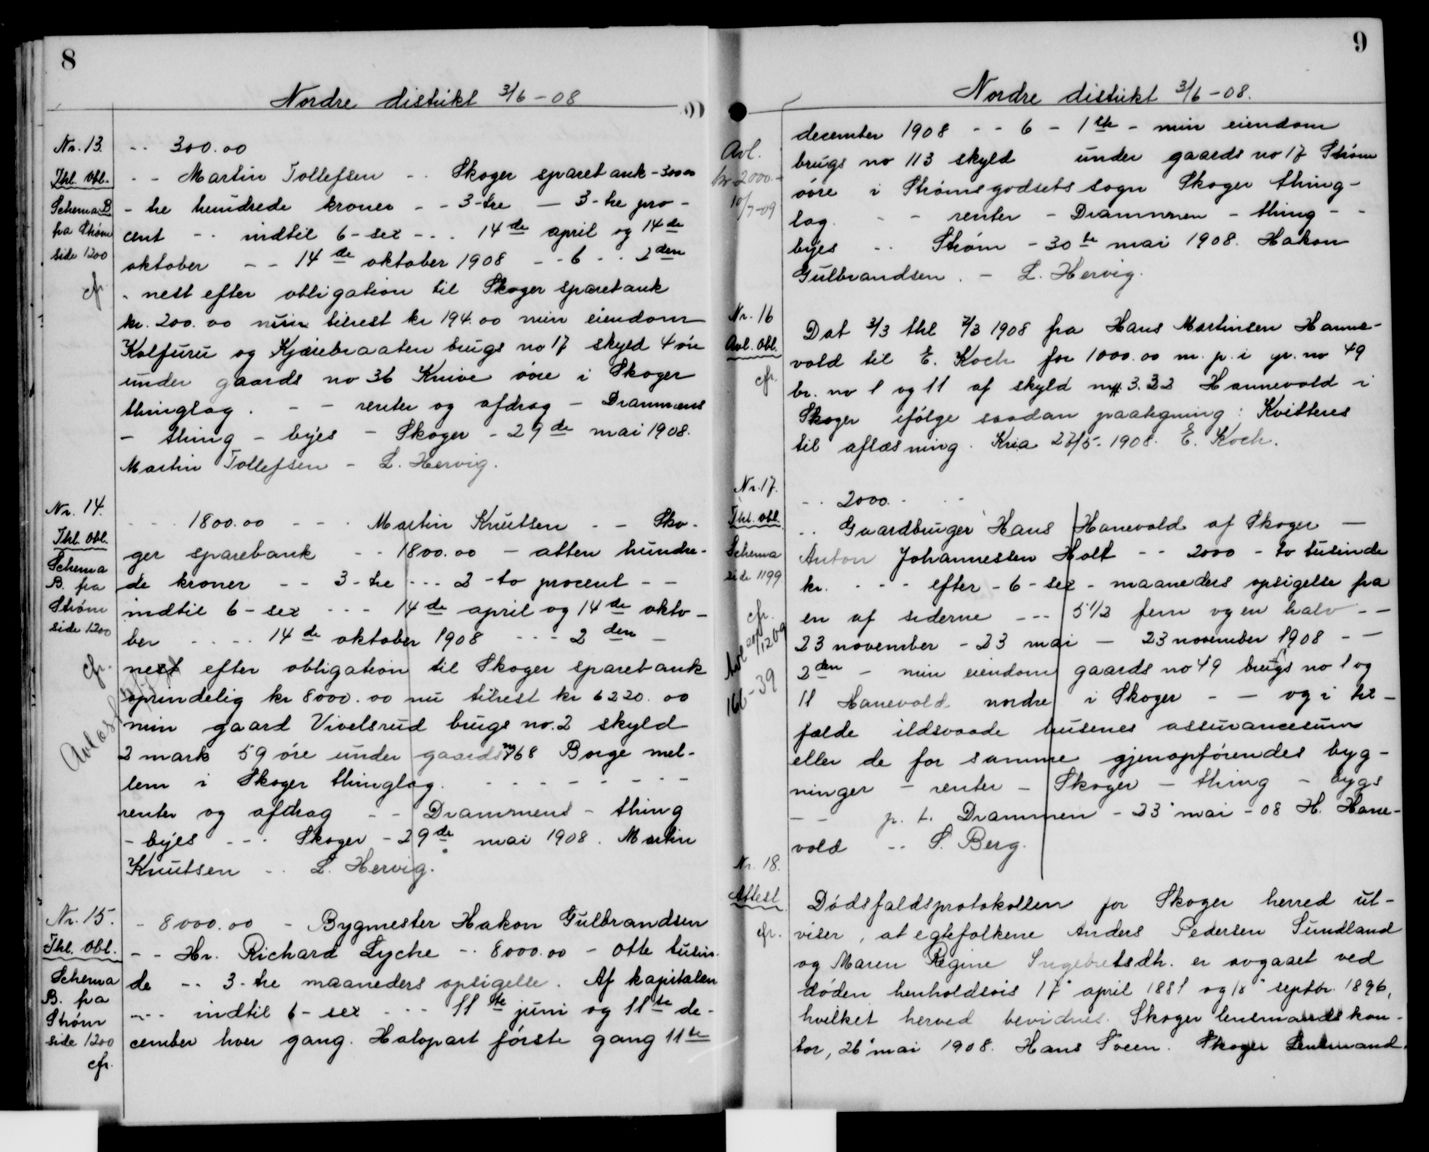 8
Nordre distrikt 3/6 - 08
Nr. 13.
Thl. Obl.
Schema B
fra Strøm
side 1200
cfr
-- 300.00
-- Martin Tollefsen -- Skoger sparebank - 300.00
- tre hundrede kroner -- 3-tre — 3-tre pro-
cent -- indtil 6-sex --- 14de april og 14de
oktober -- 14de oktober 1908 -- 6 -- 2den
- nest efter obligation til Skoger sparebank
kr. 200.00 nu tilrest kr 194.00 min eiendom
Kolfuru og Kjærebraaten brugs no 17 skyld 4 øre
under gaards no 36 Knive øvre i Skoger
thinglag. -- renter og afdrag - Drammens
- thing - byes - Skoger - 29de mai 1908.
Martin Tollefsen - L. Hervig.
Nr. 14.
Thl. Obl.
Schema
B. fra
Strøm
side 1200
cfr.
--- 1800.00 --- Martin Knutsen -- Sko-
ger sparebank -- 1800.00 - atten hundre-
de kroner -- 3-tre --- 2-to procent --
indtil 6-sex --- 14de april og 14de okto-
ber ---- 14de oktober 1908 --- 2den -
nest efter obligation til Skoger sparebank
oprindelig kr 8000.00 nu tilrest kr 6220.00
min gaard Vivelsrud brugs no. 2 skyld
2 mark 59 øre under gaards no 68 Borge mel-
lem i Skoger thinglag. -----
renter og afdrag -- Drammens - thing
- byes --- Skoger - 29de mai 1908. Martin
Knutsen -- L. Hervig.
Nr. 15.
Thl. Obl.
Schema
B. fra
Strøm
side 1200
cfr.
- 8000.00 - Bygmester Hakon Gulbrandsen
-- Hr. Richard Lyche -- 8000.00 - otte tusin-
de -- 3-tre maaneders opsigelse. Af kapitalen
--- indtil 6-sex --- 11te juni og 11te de-
cember hver gang. Halvpart første gang 11te
9
Nordre distrikt 3/6 - 08.
Avl.
kr 2000.-
10/7-09
december 1908 -- 6 - 1ste - min eiendom
brugs no 113 skyld under gaards no 17 Strøm
øvre i Strømsgodsets sogn Skoger thing-
lag. -- renter - Drammen - thing --
byes -- Strøm - 30te mai 1908. Hakon
Gulbrandsen. - L. Hervig.
Nr. 16
Avl. Obl.
cfr.
Dat 2/3 thl 7/3 1908 fra Hans Martinsen Hanne-
vold til E. Koch for 1000.00 m. p. i gr. no 49
br. no 1 og 11 af skyld mk 3.33 Hannevold i
Skoger ifølge saadan paategning: Kvitteres
til aflæsning. Kria 27/5-1908. E. Koch.
Nr. 17.
Thl. Obl.
Schema
side 1199
cfr.
166-39
-- 2000. --
-- Gaardbruger Hans Hanevold af Skoger —
Anton Johannessen Holt -- 2000 - to tusinde
kr. --- efter - 6-sex - maaneders opsigelse fra
en af siderne --- 5 1/2 fem og en halv --
23 november - 23 mai — 23 november 1908 --
2den - min eiendom gaards no 49 brugs no 1 og
11 Hanevold nordre i Skoger -- og i til-
fælde ildsvaade husenes assurancesum
eller de for samme gjenopførendes byg-
ninger - renter - Skoger - thing - bygs
-- p. t. Drammen - 23 mai - 08 H. Hane-
vold -- S. Berg.
Nr. 18.
Attest
cfr.
Dødsfaldsprotokollen for Skoger herred ut-
viser, at egtefolkene Anders Pedersen Sundland
og Maren Regine Ingebretsdh. er avgaaet ved
døden henholdsvis 17 april 1881 og 18 septbr. 1896,
hvilket herved bevidnes. Skoger lensmandskon-
tor, 26 mai 1908. Hans Sveen. Skoger Lensmand.